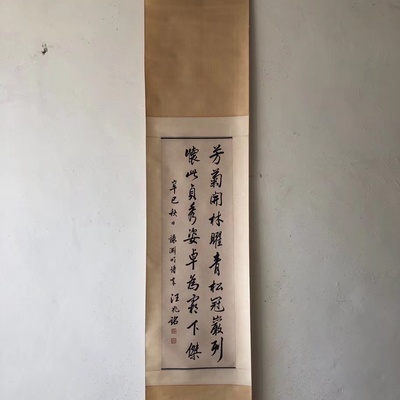 芳菊開林耀青松冠巖列
懷此貞秀姿卓為霜下傑
辛巳秋日 錄淵明詩 汪兆銘